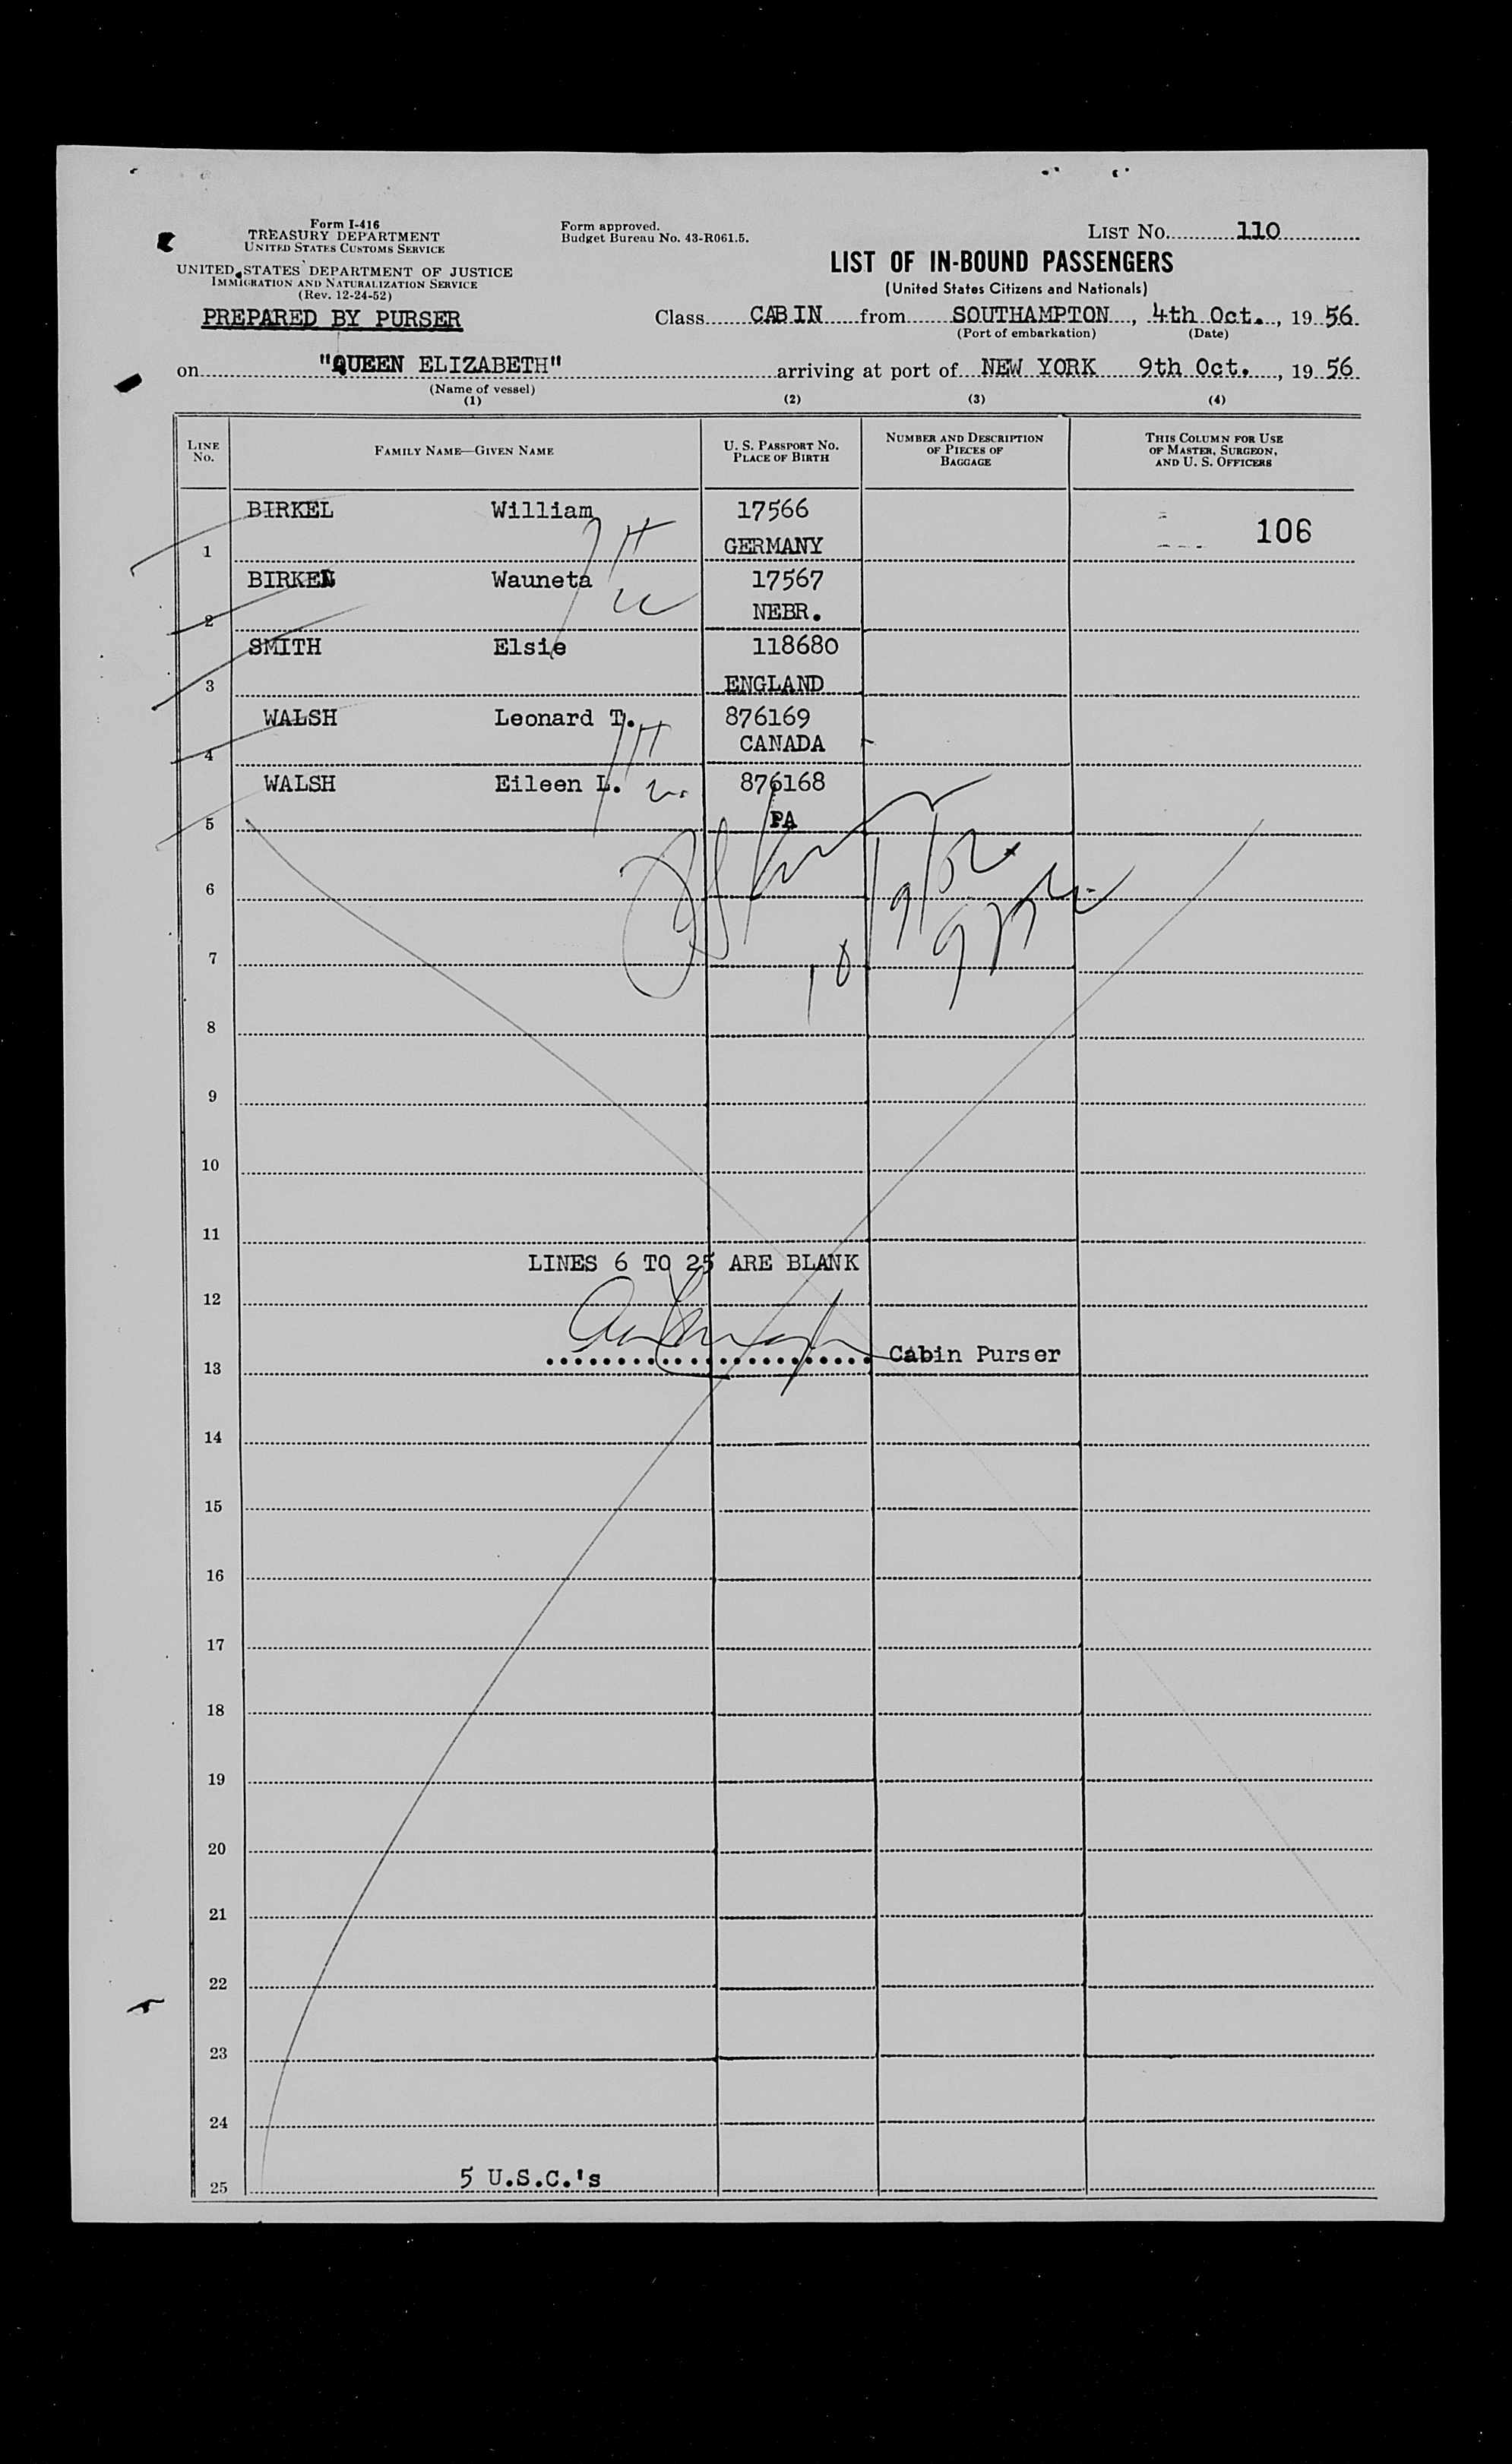 Form I-416
TREASURY DEPARTMENT
UNITED STATES CUSTOMS SERVICE
UNITED STATES DEPARTMENT OF JUSTICE
IMMIGRATION AND NATURALIZATION SERVICE
(Rev. 12-24-52)
PREPARED BY PURSER
Form approved.
Budget Bureau No. 43-R061.5.
LIST No. 110
LIST OF IN-BOUND PASSENGERS
(United States Citizens and Nationals)
Class CABIN from SOUTHAMPTON, 4th Oct., 1956
(Port of embarkation) (Date)
on "QUEEN ELIZABETH" arriving at port of NEW YORK 9th Oct., 1956
(Name of vessel)
(1) (2) (3) (4)
LINE No. FAMILY NAME—GIVEN NAME U. S. PASSPORT No. PLACE OF BIRTH NUMBER AND DESCRIPTION OF PIECES OF BAGGAGE THIS COLUMN FOR USE OF MASTER, SURGEON, AND U. S. OFFICERS
BIRKEL William 17566 106
1 GERMANY
BIRKEL Wauneta 17567
2 NEBR.
SMITH Elsie 118680
3 ENGLAND
WALSH Leonard T. 876169
4 CANADA
WALSH Eileen L. 876168
5 PA
6
7
8
9
10
11
LINES 6 TO 25 ARE BLANK
12
Cabin Purser
13
14
15
16
17
18
19
20
21
22
23
24
5 U.S.C.'s
25